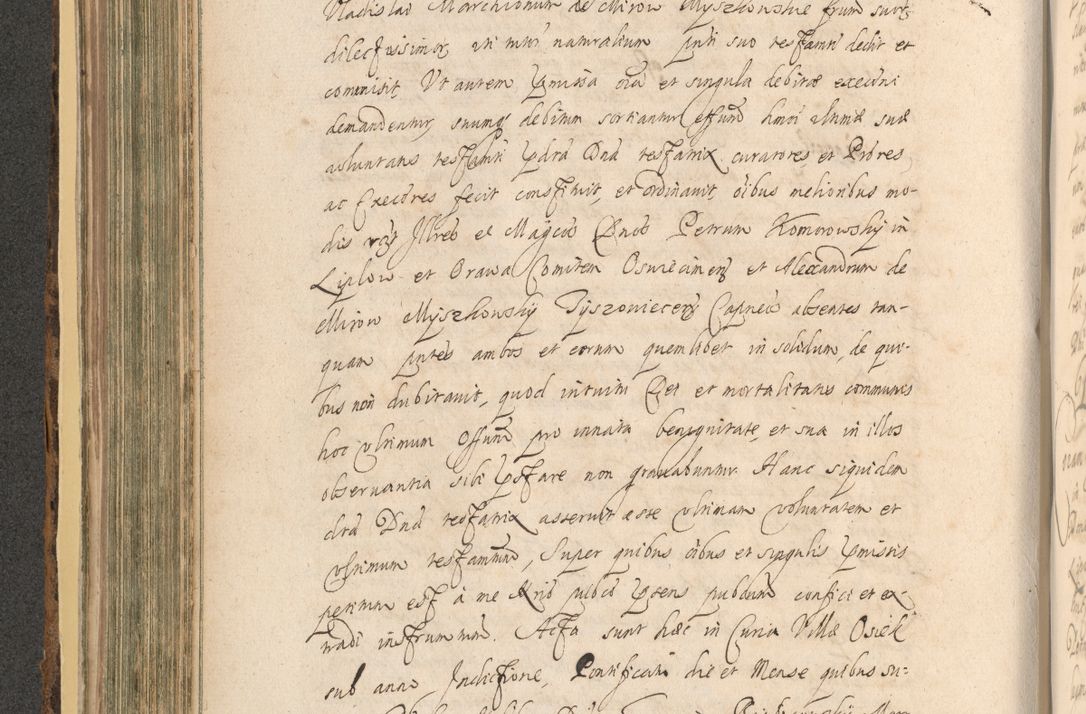 Vladislai Marchionum de Mirow Myszkowskie frum suor
dilectissimor uti tutri naturalium pnti suo testamto dedit et
commisit, Ut autem pmissa oia et singula debitae execoni
demandentur, suumq debitum sortiantur effum hmoi ultimae suae
voluntatis testamti pdta Dna testatrix curatores et Prores,
ac Execores fecit constituit, et ordinavit, oibus melioribus mo-
dis Illres et Magcos Dnos Petrum Komorowsky in
Liplow et Orawa Comitem Oswiecimens et Alexandrum de
Mirow Myszkowsky Tyszoviecens Capneos absentes tan-
quam pntes ambos et eorum quemlibet in solidum, de qui-
bus non dubitavit, quod intuitu Dei et mortalitatis communis
hoc ultimum Offum pro innata benignitate, et sua in illos
observantia sibi pstare non gravabuntur. Hanc siquidem
dta Dna testatrix asseruit esse ultimam voluntatem et
ultimum testamtum, Super quibus oibus et singulis pmissis
petitum est à me Nrio pubco psens pubcum confici et ex-
tradi instrumtum. Acta sunt haec in Curia Villae Osiek
sub anno, Indictione, Pontificatu die et Mense quibus su-